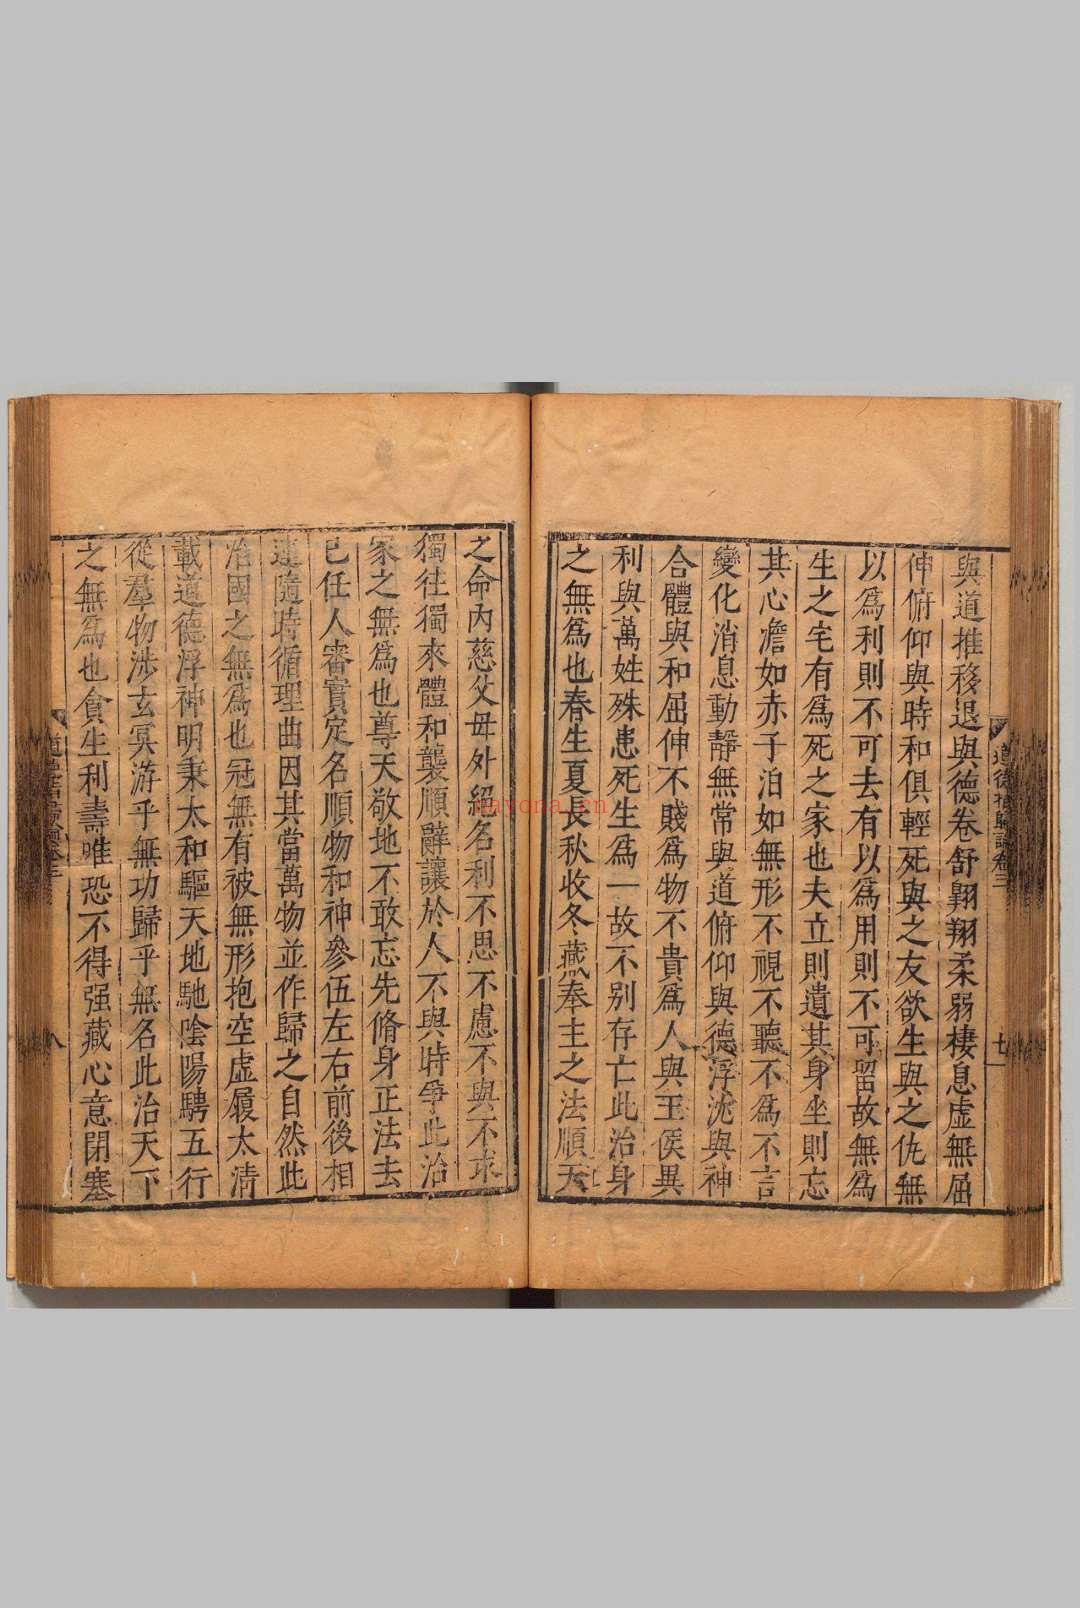 與道推移退與德卷舒翺翔柔弱棲息虛無屈
伸俯仰與時和俱輕死與之友欲生與之仇無
以爲利則不可去有以爲用則不可留故無爲
生之宅有爲死之家也夫立則遺其身坐則忘
其心澹如赤子泊如無形不視不聽不爲不言
變化消息動靜無常與道俯仰與德浮沈與神
合體與和屈伸不賤爲物不貴爲人與王侯異
利與萬姓殊患死生爲一故不別存亡此治身
之無爲也春生夏長秋收冬藏奉主之法順天
之命內慈父母外絕名利不思不慮不與不求
獨往獨來體和襲順辭讓於人不與時爭此治
家之無爲也尊天敬地不敢忘先脩身正法去
己任人審實定名順物和神參伍左右前後相
違隨時循理曲因其當萬物並作歸之自然此
治國之無爲也冠無有被無形抱空虛履太清
載道德浮神明秉太和驅天地馳陰陽騁五行
從羣物涉玄冥游乎無功歸乎無名此治天下
之無爲也貪生利壽唯恐不得强藏心意閉塞
道德指歸論卷三
七
八
nayona.cn